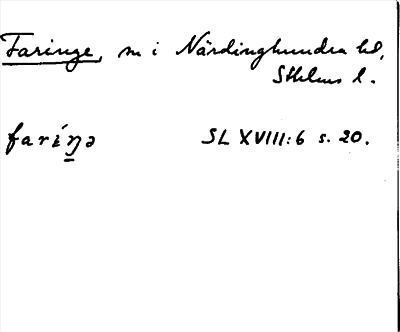 Faringe, sn i Närdinghundra hd,
Sthlms l.
farí́ŋə SL XVIII:6 s. 20.